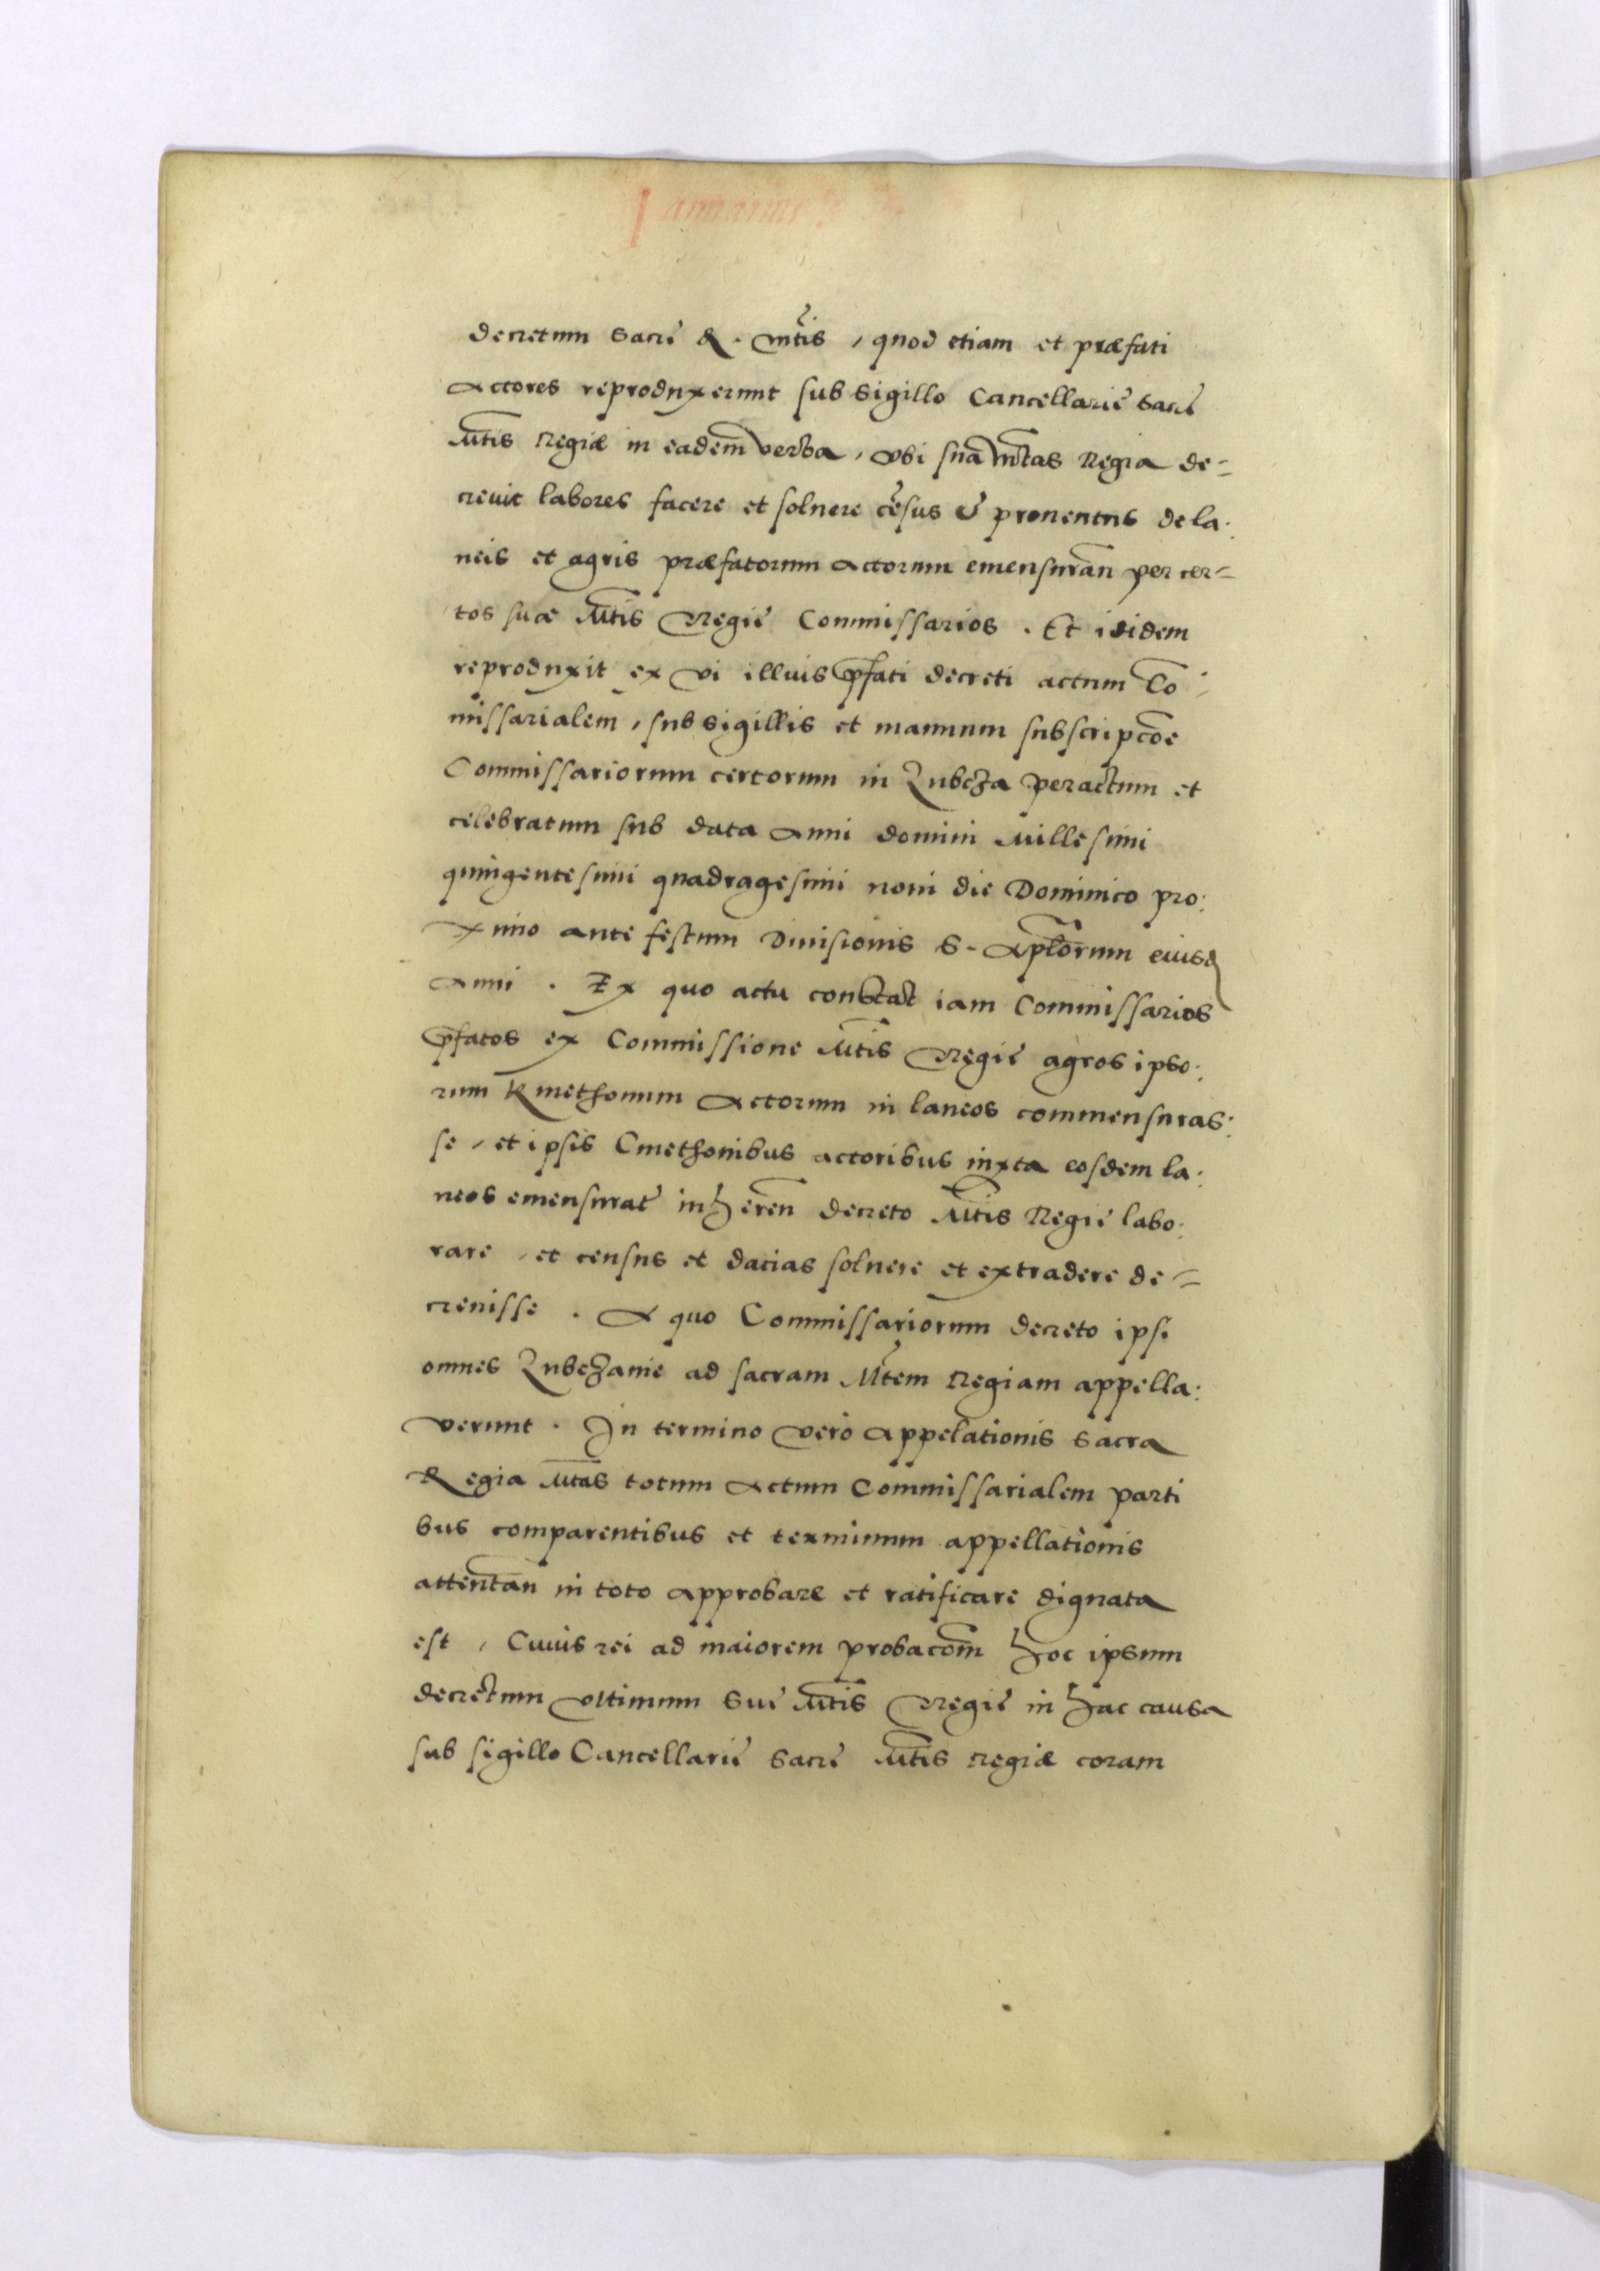 decretum Sacrę R. Mtis, quod etiam et præfati
Actores reproduxerunt sub Sigillo Cancellarię Sacrę
Mtis Regiæ in eadem verba, Vbi sua Mtas Regia de=
creuit labores facere et soluere cēsus & prouentus de la:
neis et agris præfatorum Actorum emensurān per cer=
tos suæ Mtis Regię Commissarios. Et ibidem
reproduxit ex vi illius pfati decreti actum Cō:
missarialem, sub sigillis et manuum subscripcōe
Commissariorum certorum in Zubcza peractum et
celebratum sub data Anni domini Millesimi
quingentesimi quadragesimi noni die Dominico pro:
ximo ante festum Diuisionis S. Aplorum eiusd
Anni. Ex quo actu constat iam Commissarios
pfatos ex Commissione Mtis Regię agros ipso:
rum Kmethonum Actorum in laneos commensuras:
se, et ipsis Cmethonibus actoribus iuxta eosdem la:
neos emensurat inherēn decreto Mtis Regię labo:
rare, et census et dacias soluere et extradere de=
creuisse. A quo Commissariorum decreto ipsi
omnes Zubczanie ad sacram Mtem Regiam appella:
verunt. In termino vero Appelationis Sacra
Regia Mtas totum Actum Commissarialem parti
bus comparentibus et terminum appellationis
attentān in toto Approbare et ratificare dignata
est, Cuius rei ad maiorem probacōm hoc ipsum
decretum vltimum Suę Mtis Regię in hac causa
sub sigillo Cancellarię Sacrę Mtis Regiæ coram